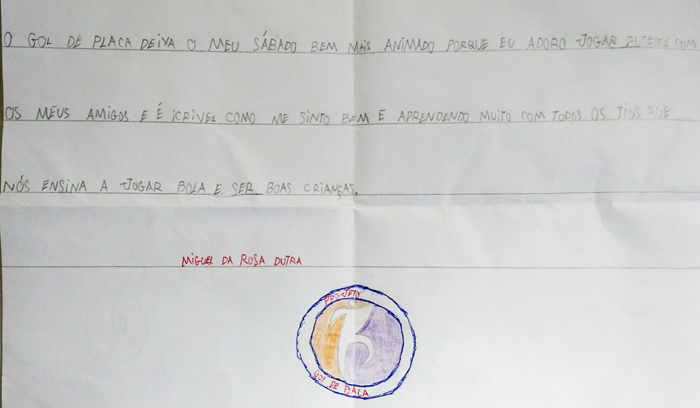 O GOL DE PLACA DEIVA O MEU SÁBADO BEM MAIS ANIMADO PORQUE EU ADORO JOGAR FUTEBOL COM
OS MEUS AMIGOS E É ICRIVEL COMO ME SINTO BEM E APRENDENDO MUITO COM TODOS OS TIOS QUE
NÓS ENSINA A JOGAR BOLA E SER BOAS CRIANÇAS.
MIGUEL DA ROSA DUTRA
PROJETO
GOL DE PLACA